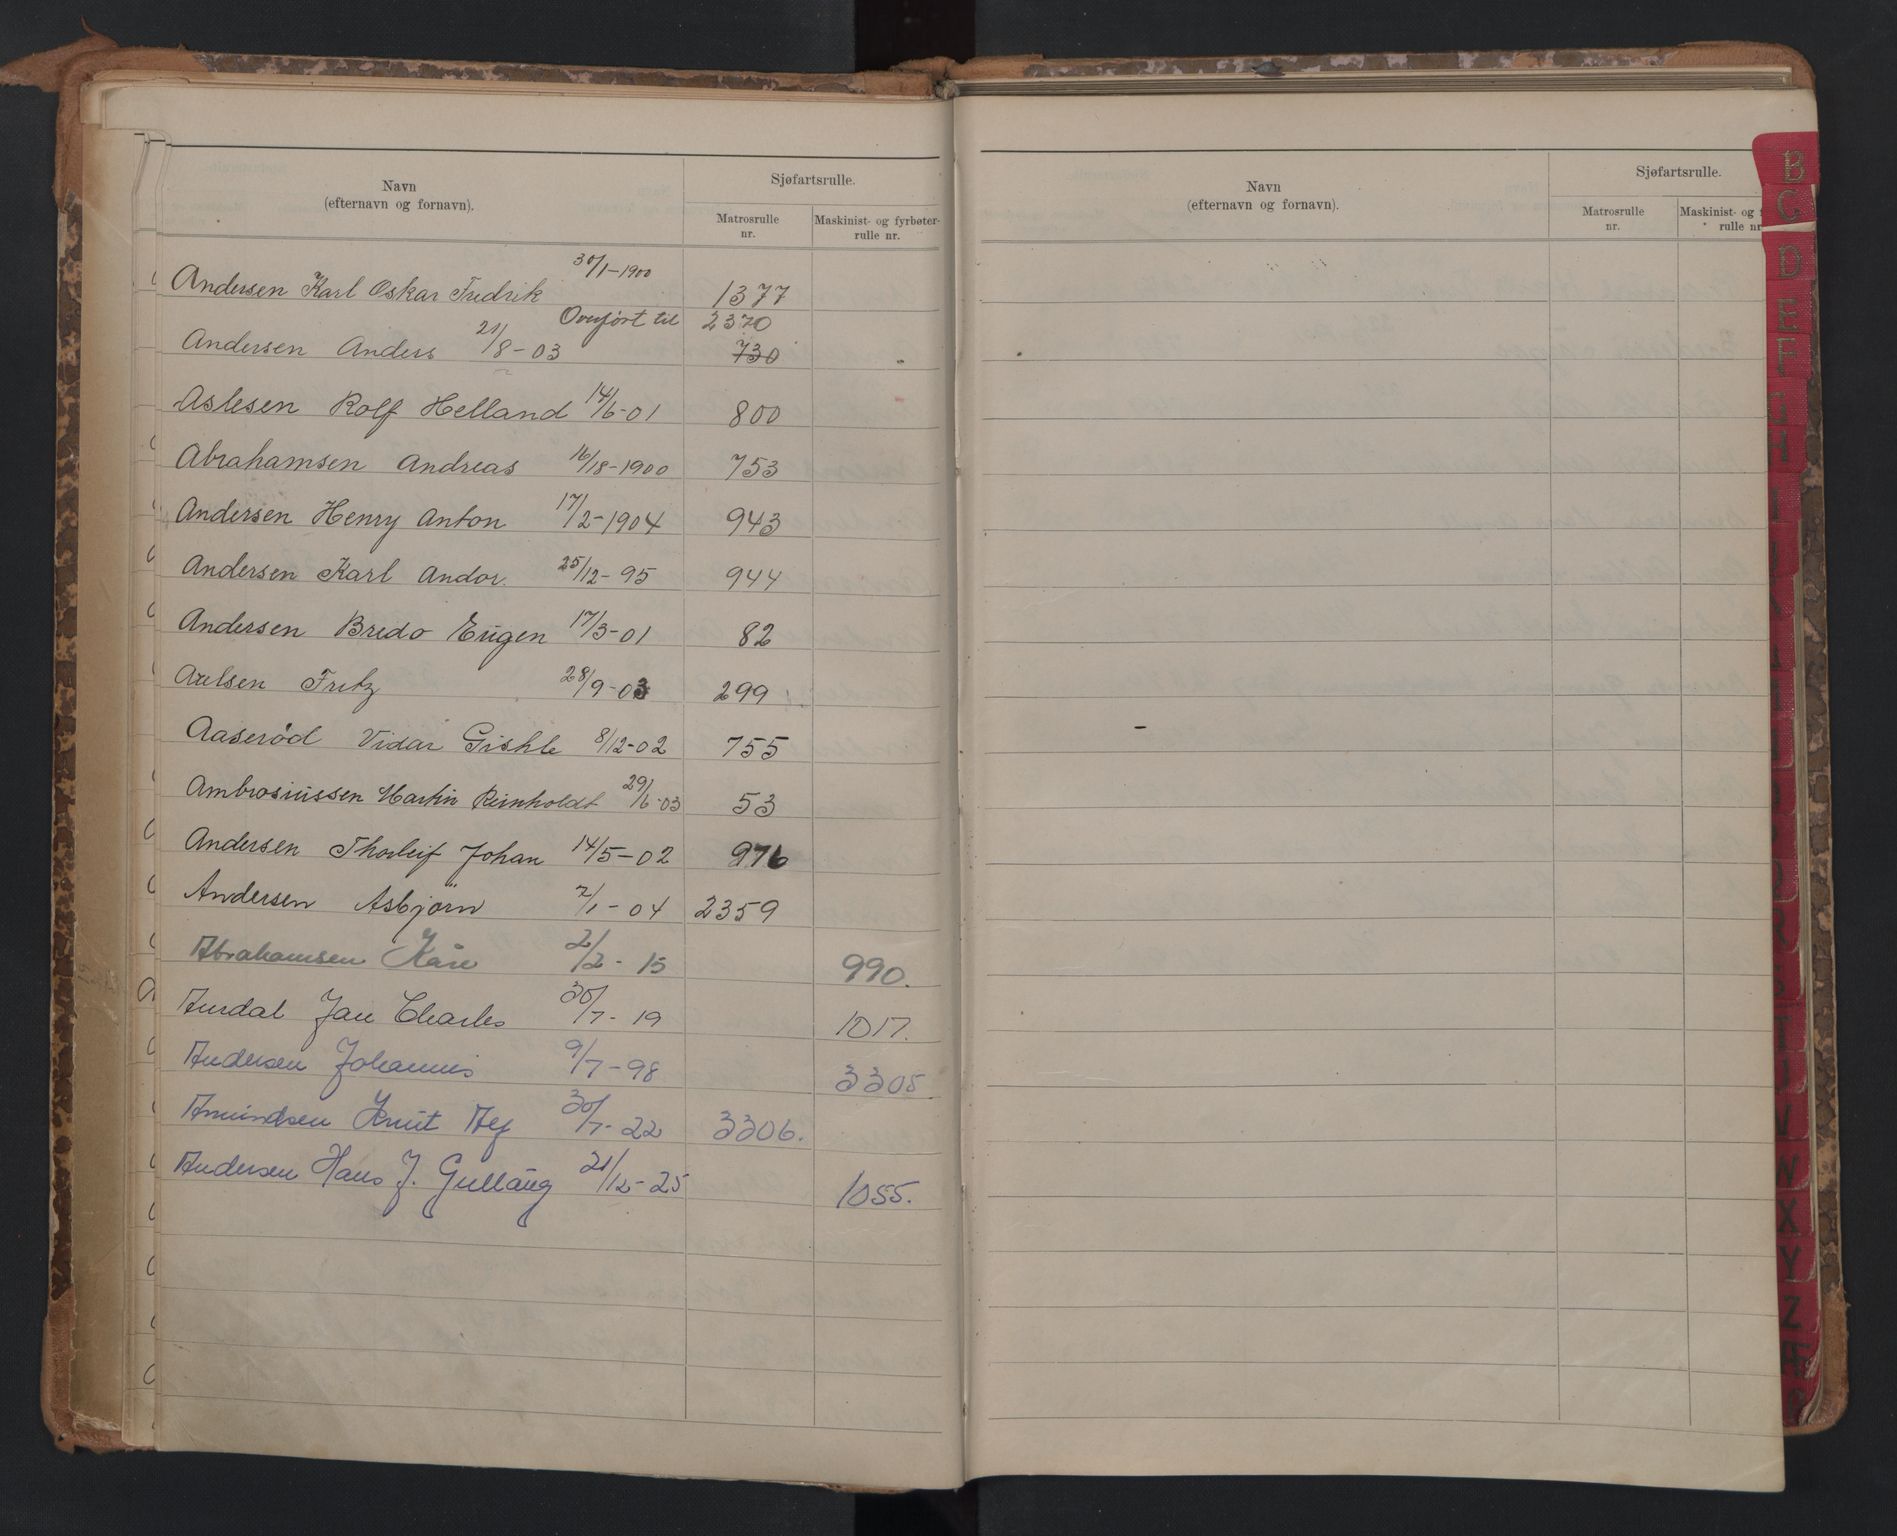 Navn
(efternavn og fornavn).
Sjøfartsrulle.
Matrosrulle
nr.
Maskinist- og fyrbøter-
rulle nr.
30/1-1900
Andersen Karl Oskar Fredrik 1377
Overført til 2370
Andersen Anders 21/8-03 730
Aslesen Rolf Helland 14/6-01 800
Abrahamsen Andreas 16/18-1900 753
Andersen Henry Anton 17/2-1904 943
Andersen Karl Andor. 25/12-95 944
Andersen Bredo Eugen 17/3-01 82
Axelsen Fritz 28/9-03 299
Aaserød Vidar Giskle 8/12-02 755
Ambrosiussen Martin Reinholdt 29/6-03 53
Andersen Thorleif Johan 14/5-02 976
Andersen Asbjørn 2/1-04 2359
Abrahamsen Kåre 2/2-15 990.
Aurdal Jan Charles 30/7-19 1017.
Andersen Johannes 9/7-98 3305
Amundsen Knut Alf 30/7-22 3306.
Andersen Hans J. Gullaug 21/12-25 1055.
Navn
(efternavn og fornavn).
Sjøfartsrulle.
Matrosrulle
nr.
Maskinist- og f
rulle nr
B
C
D
E
F
V
W
X
Y
Z
Æ